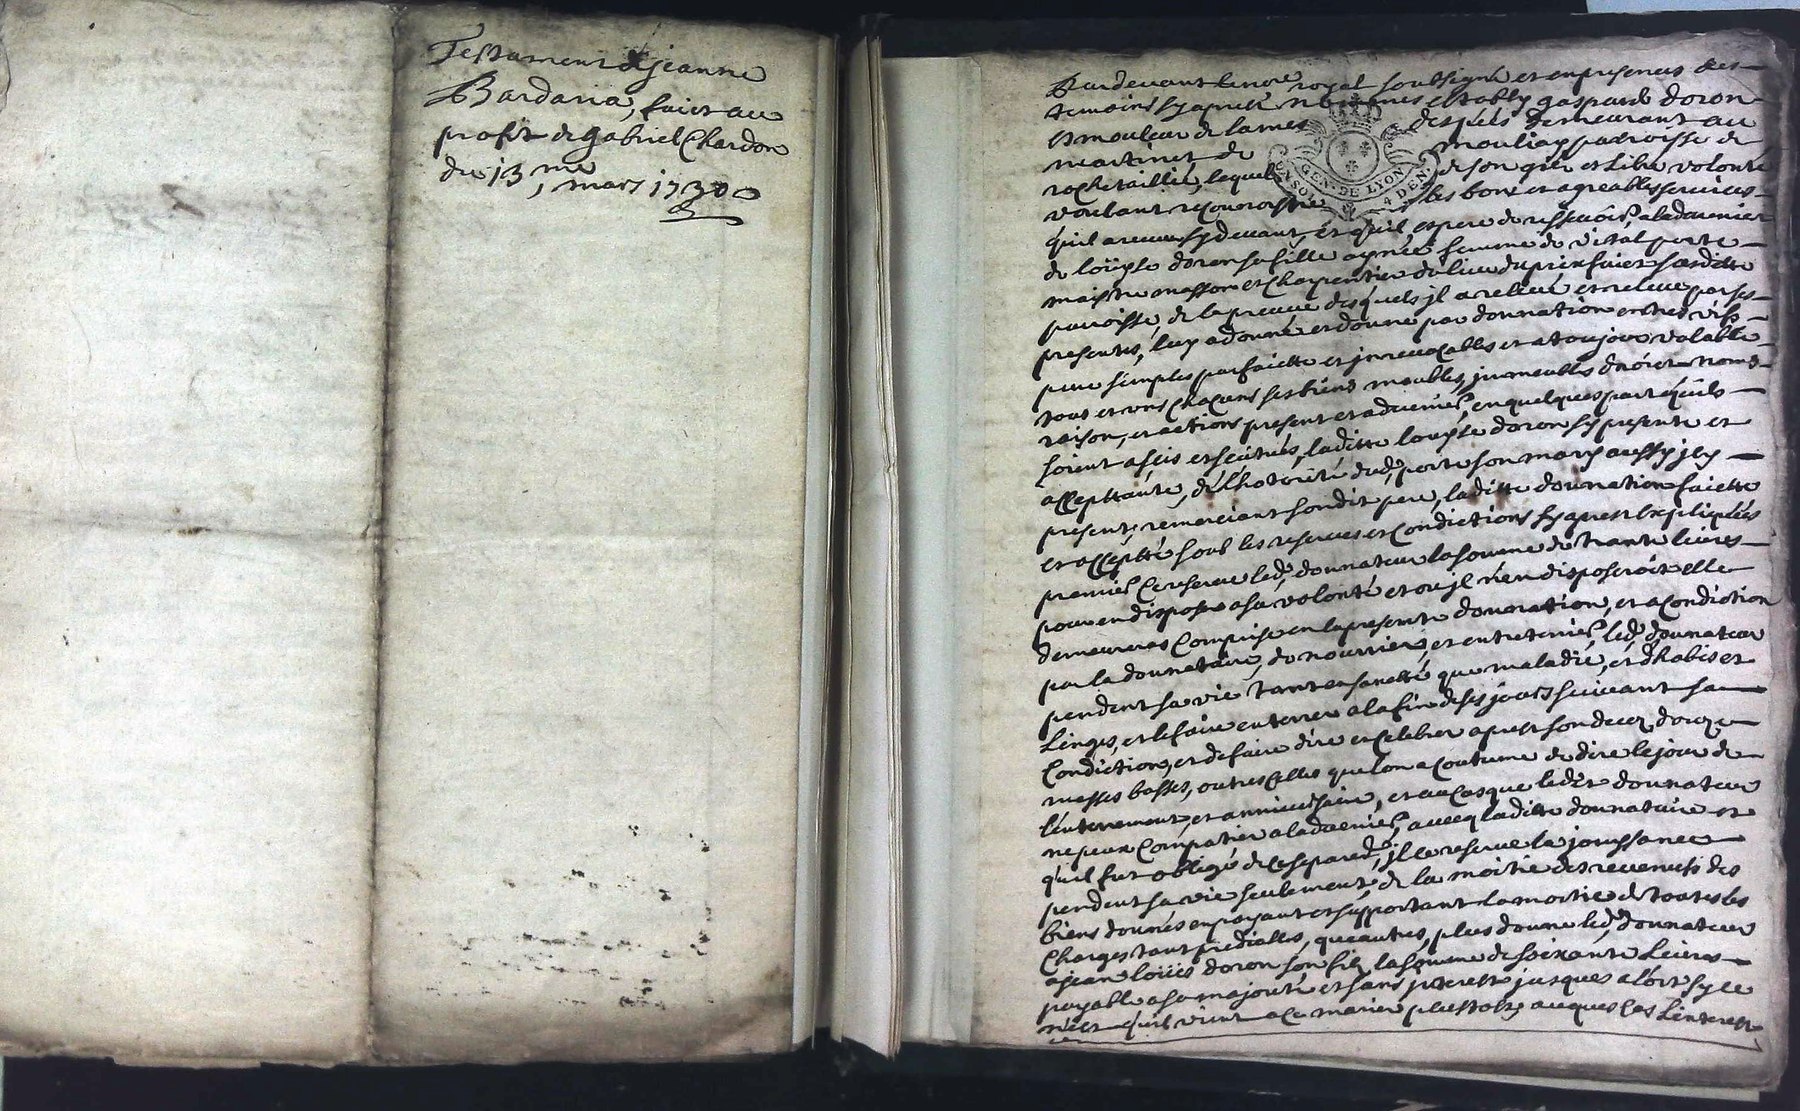 Testament de jeanne
Bardaria, faict au
profit de gabriel Chardon
du 13,me mars 1730
Pardevant le nore royal soubsigné et en presences des
temoins sy apres nommés estably gaspard doron
et mouleur de lames d'espées demeurant au
martinet de mouliay parroisse de
rochetaillié, lequel de son gré et libre volonté
voulant reconnoistre les bons et agreables services
qu'il a receu sy devant, et qu'il espere de recevoir a ladvenier
de loüyse doron sa fille aynée femme de vital porte
maistre masson et charpentier du lieu du prix faict susditte
parroisse, de la preuve desquels jl a relevé et releve par ses
presentes, luy a donné et donne par donnation entres vifs
pure simples parfaictte et jrrevocables et a toujour valable
tous et uns chacuns ses biens meubles, jmeubles droict noms
raison, et actions present et advenier, en quelques part qu'ils
soient assis et scitués, laditte louyse doron sy presente et
accepttante, de l'hotorité dud, porte son mary aussy jcy
present, remerciant sondit pere, laditte donnation faictte
et accepttée soub les reserves et condictions sy apres expliquées
premier ce reserve led, donnateur la somme de trante livres
pour en disposer a sa volonté et ou jl n'en disposeroit elle
demeurera comprise en la presente donnation, et a condiction
par la donnataire, de nourrier, et entretenier, led, donnateur
pendent sa vie tant en sanctté que maladie, et d'habis et
Linges, et le faire enterrer a la fin de ses jours suivant sa
Condiction, et de faire dire et celebrer apres son decez, douze
messes basses, outres celles que lon a coutume de dire le jour de
l'enterrement, et anniversaire, et au cas que ledit donnateur
ne peux compatier a ladvenier, avecq laditte donnataire et
qu'il fut obligé de ce separed, jl ce reserve la jouyssance
pendent sa vie seulement, de la moitié des revenus des
biens donnés en payant et supportant la moitié de toutes les
Charges tant prediales, que autres, plus donne led, donnateur
a jean loüis doron son fils la somme de soixante livres
payable a sa majorité et sans jnterest jusques alors sy ce
n'est qu'il vient a ce marier plustost, auques cas L'interest